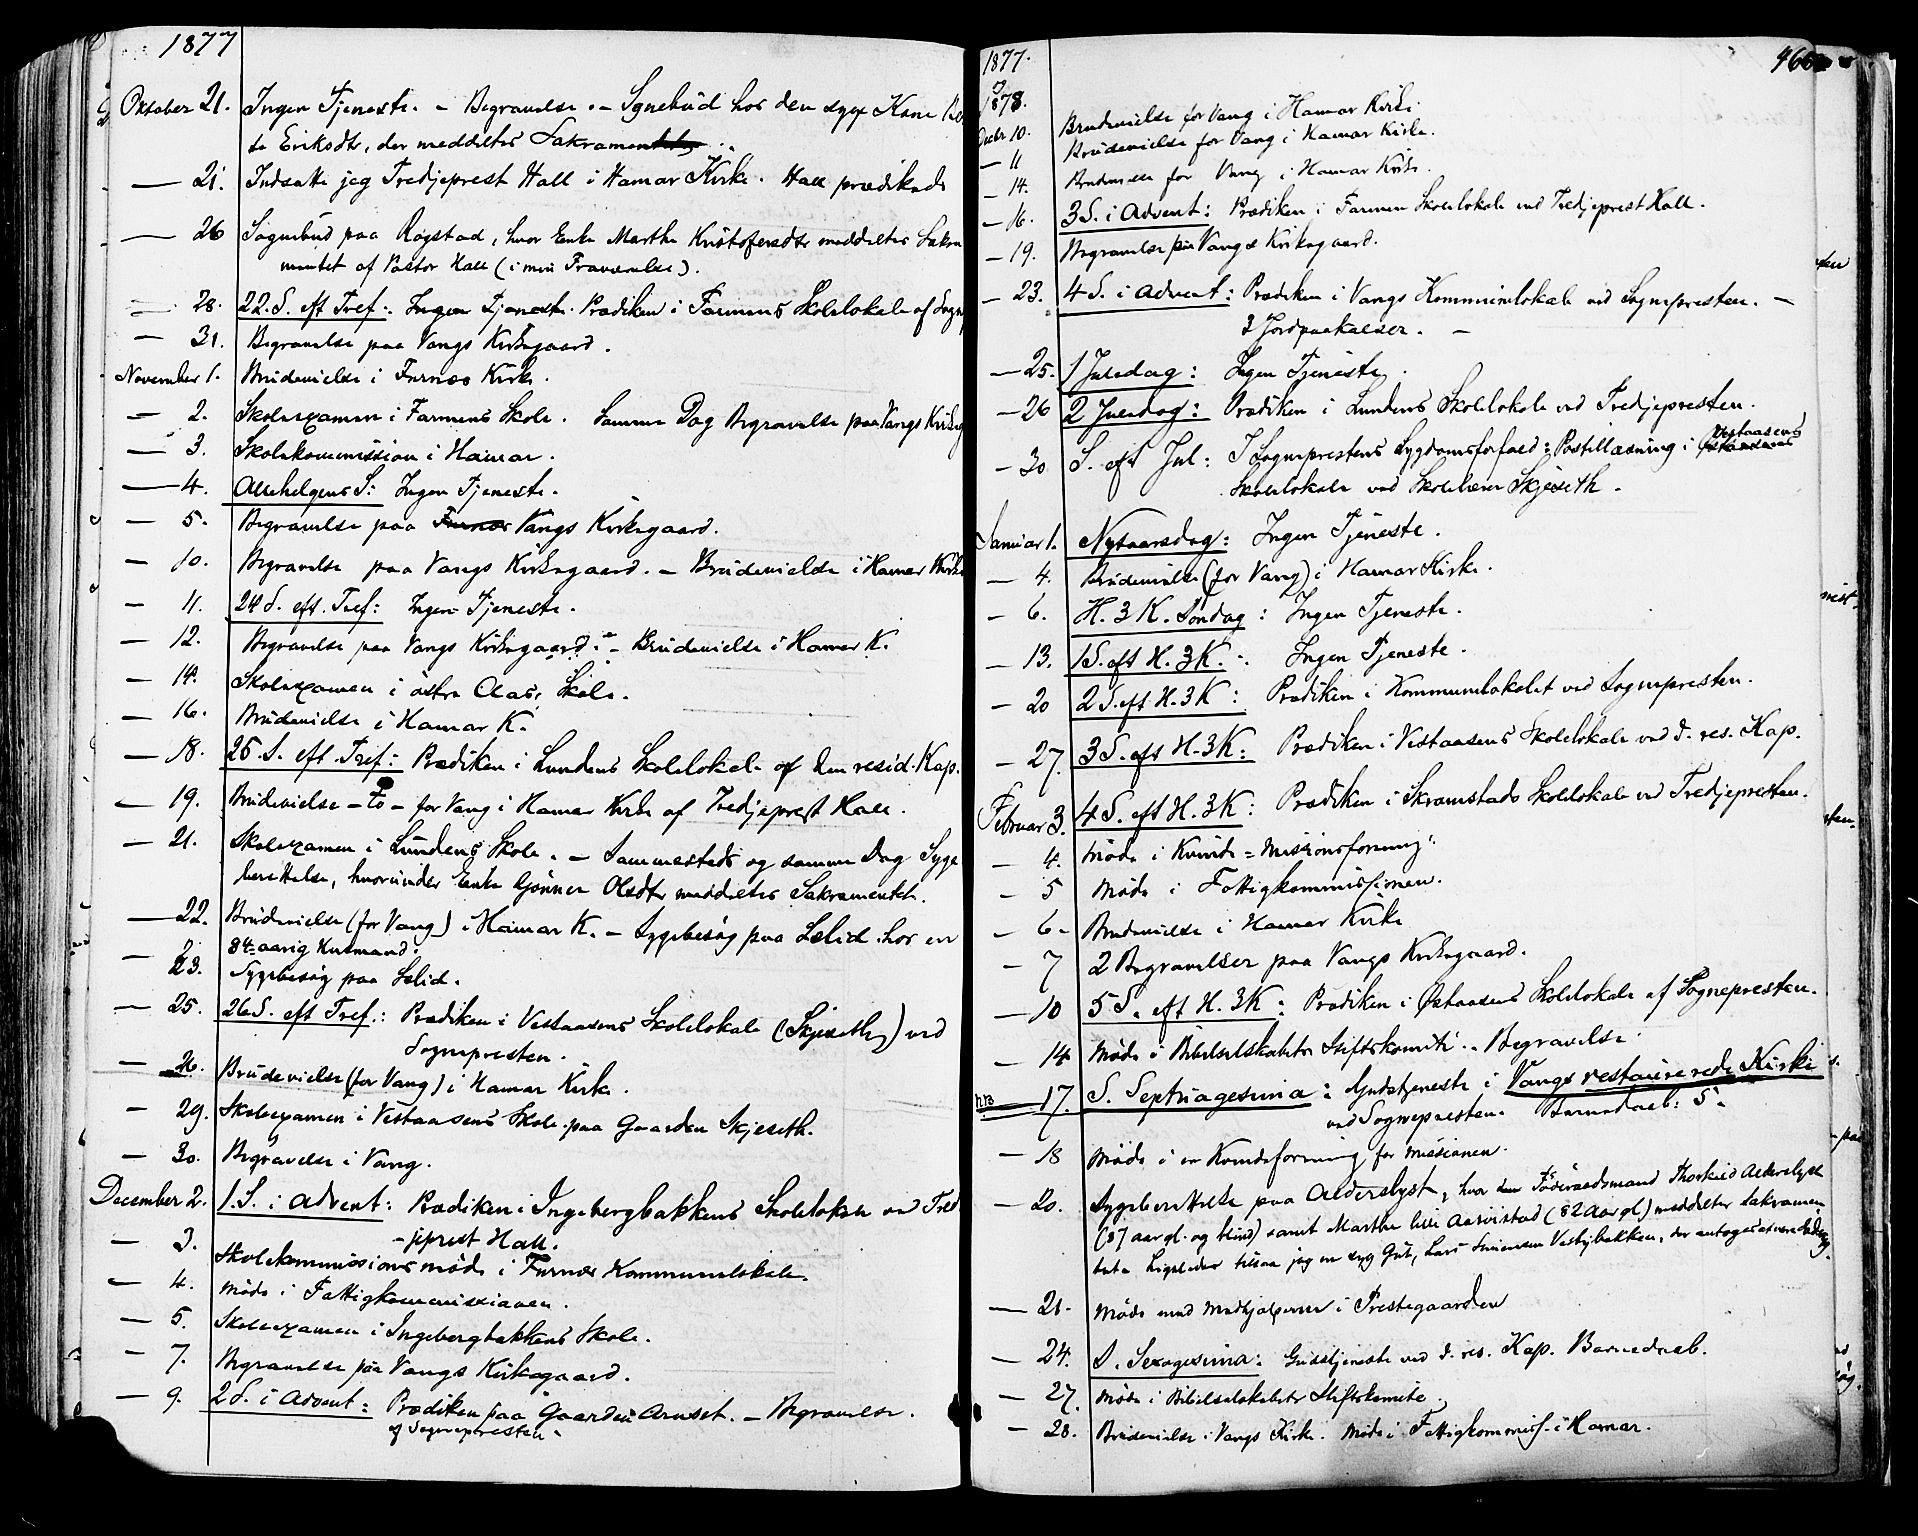 1877
Oktober 21. Ingen Tjeneste. – Begravelse. – Sognebud hos den syge Kone
Eriksdtr, der meddeltes Sakramentet
— 21. Indsatte jeg Tredjeprest Hall i Hamar Kirke. Hall prædikede
— 26 Sognebud paa Rogstad, hvor Enke Marthe Kristofersdtr meddeltes Sakra
mentet af Pastor Hall (i min Fraværelse).
— 28. 22. S. eft Tref: Ingen Tjeneste. Prædiken i Farmens Skolelokale af Sogn
— 31. Begravelse paa Vangs Kirkegaard.
November 1. Brudevielse i Furnes Kirke.
— 2. Skoleexamen i Farmens Skole. Samme Dag Begravelse paa Vangs Kirkeg
— 3. Skolekommission i Hamar.
— 4. Allehelgens S: Ingen Tjeneste.
— 5. Begravelse paa Furnes Vangs Kirkegaard.
— 10. Begravelse paa Vangs Kirkegaard. – Brudevielse i Hamar Kirke
— 11. 24 S. eft. Tref: Ingen Tjeneste.
— 12. Begravelse paa Vangs Kirkegaard. – Brudevielse i Hamar K.
— 14. Skoleexamen i østre Aas. Skole.
— 16. Brudevielse i Hamar K.
— 18. 25 S. eft Tref: Prædiken i Lundens Skolelokale af den resid. Kap.
— 19. Brudevielse – to – for Vang i Hamar Kirke af Tredjeprest Hall.
— 21. Skoleexamen i Lundens Skole. – Sammesteds og samme Dag Syge
berettelse, hvorunder Enke Gønner Olsdtr meddeltes Sakramentet.
— 22. Brudevielse (for Vang) i Hamar K. – Sygebesøg paa Lælid hos en
84-aarig Husmand.
— 23. Sygebesøg paa Lælid.
— 25. 26 S. eft Tref.: Prædiken i Vestaasens Skolelokale (Skjeseth) ved
Sognepresten.
— 26. Brudevielse (for Vang) i Hamar Kirke.
— 29. Skoleexamen i Vestaasens Skole paa Gaarden Skjeseth.
— 30. Begravelse i Vang.
December 2. 1. S. i Advent: Prædiken i Ingebergbakkens Skolelokale ved Tred
-jeprest Hall.
— 3. Skolekommissionsmøde i Furnes Kommunelokale.
— 4. Møde i Fattigkommissionen.
— 5. Skoleexamen i Ingebergbakkens Skole.
— 7. Begravelse paa Vangs Kirkegaard.
— 9. 2 S. i Advent: Prædiken paa Gaarden Arnset. – Begravelse.
af Sognepresten
1877.
1878.
466
Decbr 10. Brudevielse for Vang i Hamar Kirke.
— 11 Brudevielse for Vang i Hamar Kirke.
— 14. Brudevielse for Vang i Hamar Kirke.
— 16. 3 S. i Advent: Prædiken i Farmen Skolelokale ved Tredjeprest Hall.
— 19. Begravelse paa Vangs Kirkegaard.
— 23. 4 S. i Advent: Prædiken i Vangs Kommunelokale ved Sognepresten. –
3 Jordpaakastelser. –
— 25. 1 Juledag: Ingen Tjeneste.
— 26 2 Juledag: Prædiken i Lundens Skolelokale ved Tredjepresten.
— 30 S. eft Jul: I Sogneprestens Sygdomsforfald: Postillæsning i Vestaasens
Skolelokale ved Skolelærer Skjeseth.
Januar 1. Nytaarsdag: Ingen Tjeneste.
— 4. Brudevielse (for Vang) i Hamar Kirke.
— 6. H. 3 K. Søndag: Ingen Tjeneste.
— 13. 1 S. eft H. 3 K.: Ingen Tjeneste.
— 20 2 S. eft H. 3 K: Prædiken i Kommunelokalet ved Sognepresten.
— 27. 3 S. eft H. 3 K: Prædiken i Vestaasens Skolelokale ved d. res. Kap.
Februar 3. 4 S. eft H. 3 K: Prædiken i Skramstads Skolelokale ved Tredjepresten.
— 4. Møde i Kvinde-Missionsforening.
— 5 Møde i Fattigkommissionen.
— 6 – Brudevielse i Hamar Kirke
— 7 2 Begravelser paa Vangs Kirkegaard.
— 10 5 S. eft H. 3 K: Prædiken i Østaasens Skolelokale af Sognepresten.
— 14 Møde i Bibelselskabets Stiftskomite. Begravelse
— 17. S. Septuagesima: Gudstjeneste i Vangs restaurerede Kirke
ved Sognepresten. Barnedaab: 5.
— 18 Møde i en Kvindeforening for Missionen.
— 20. Sygeberettelse paa Alderslyst, hvor Føderaadsmand Thorkild Alderslyst
(87 aar gl. og blind) samt Marthe lille Aarvistad (82 Aar gl) meddeltes Sakramen
tet. Ligeledes tilsaa jeg en syg Gut, Lars Simensen Vestbybakken, der antoges at være
— 21. Møde med Medhjælperne i Prestegaarden
— 24. S. Sexagesima: Gudstjeneste ved d. res. Kap. Barnedaab.
— 27. Møde i Bibelselskabets Stiftskomite.
— 28. Brudevielse i Vangs Kirke. Møde i Fattigkommiss. i Hamar.